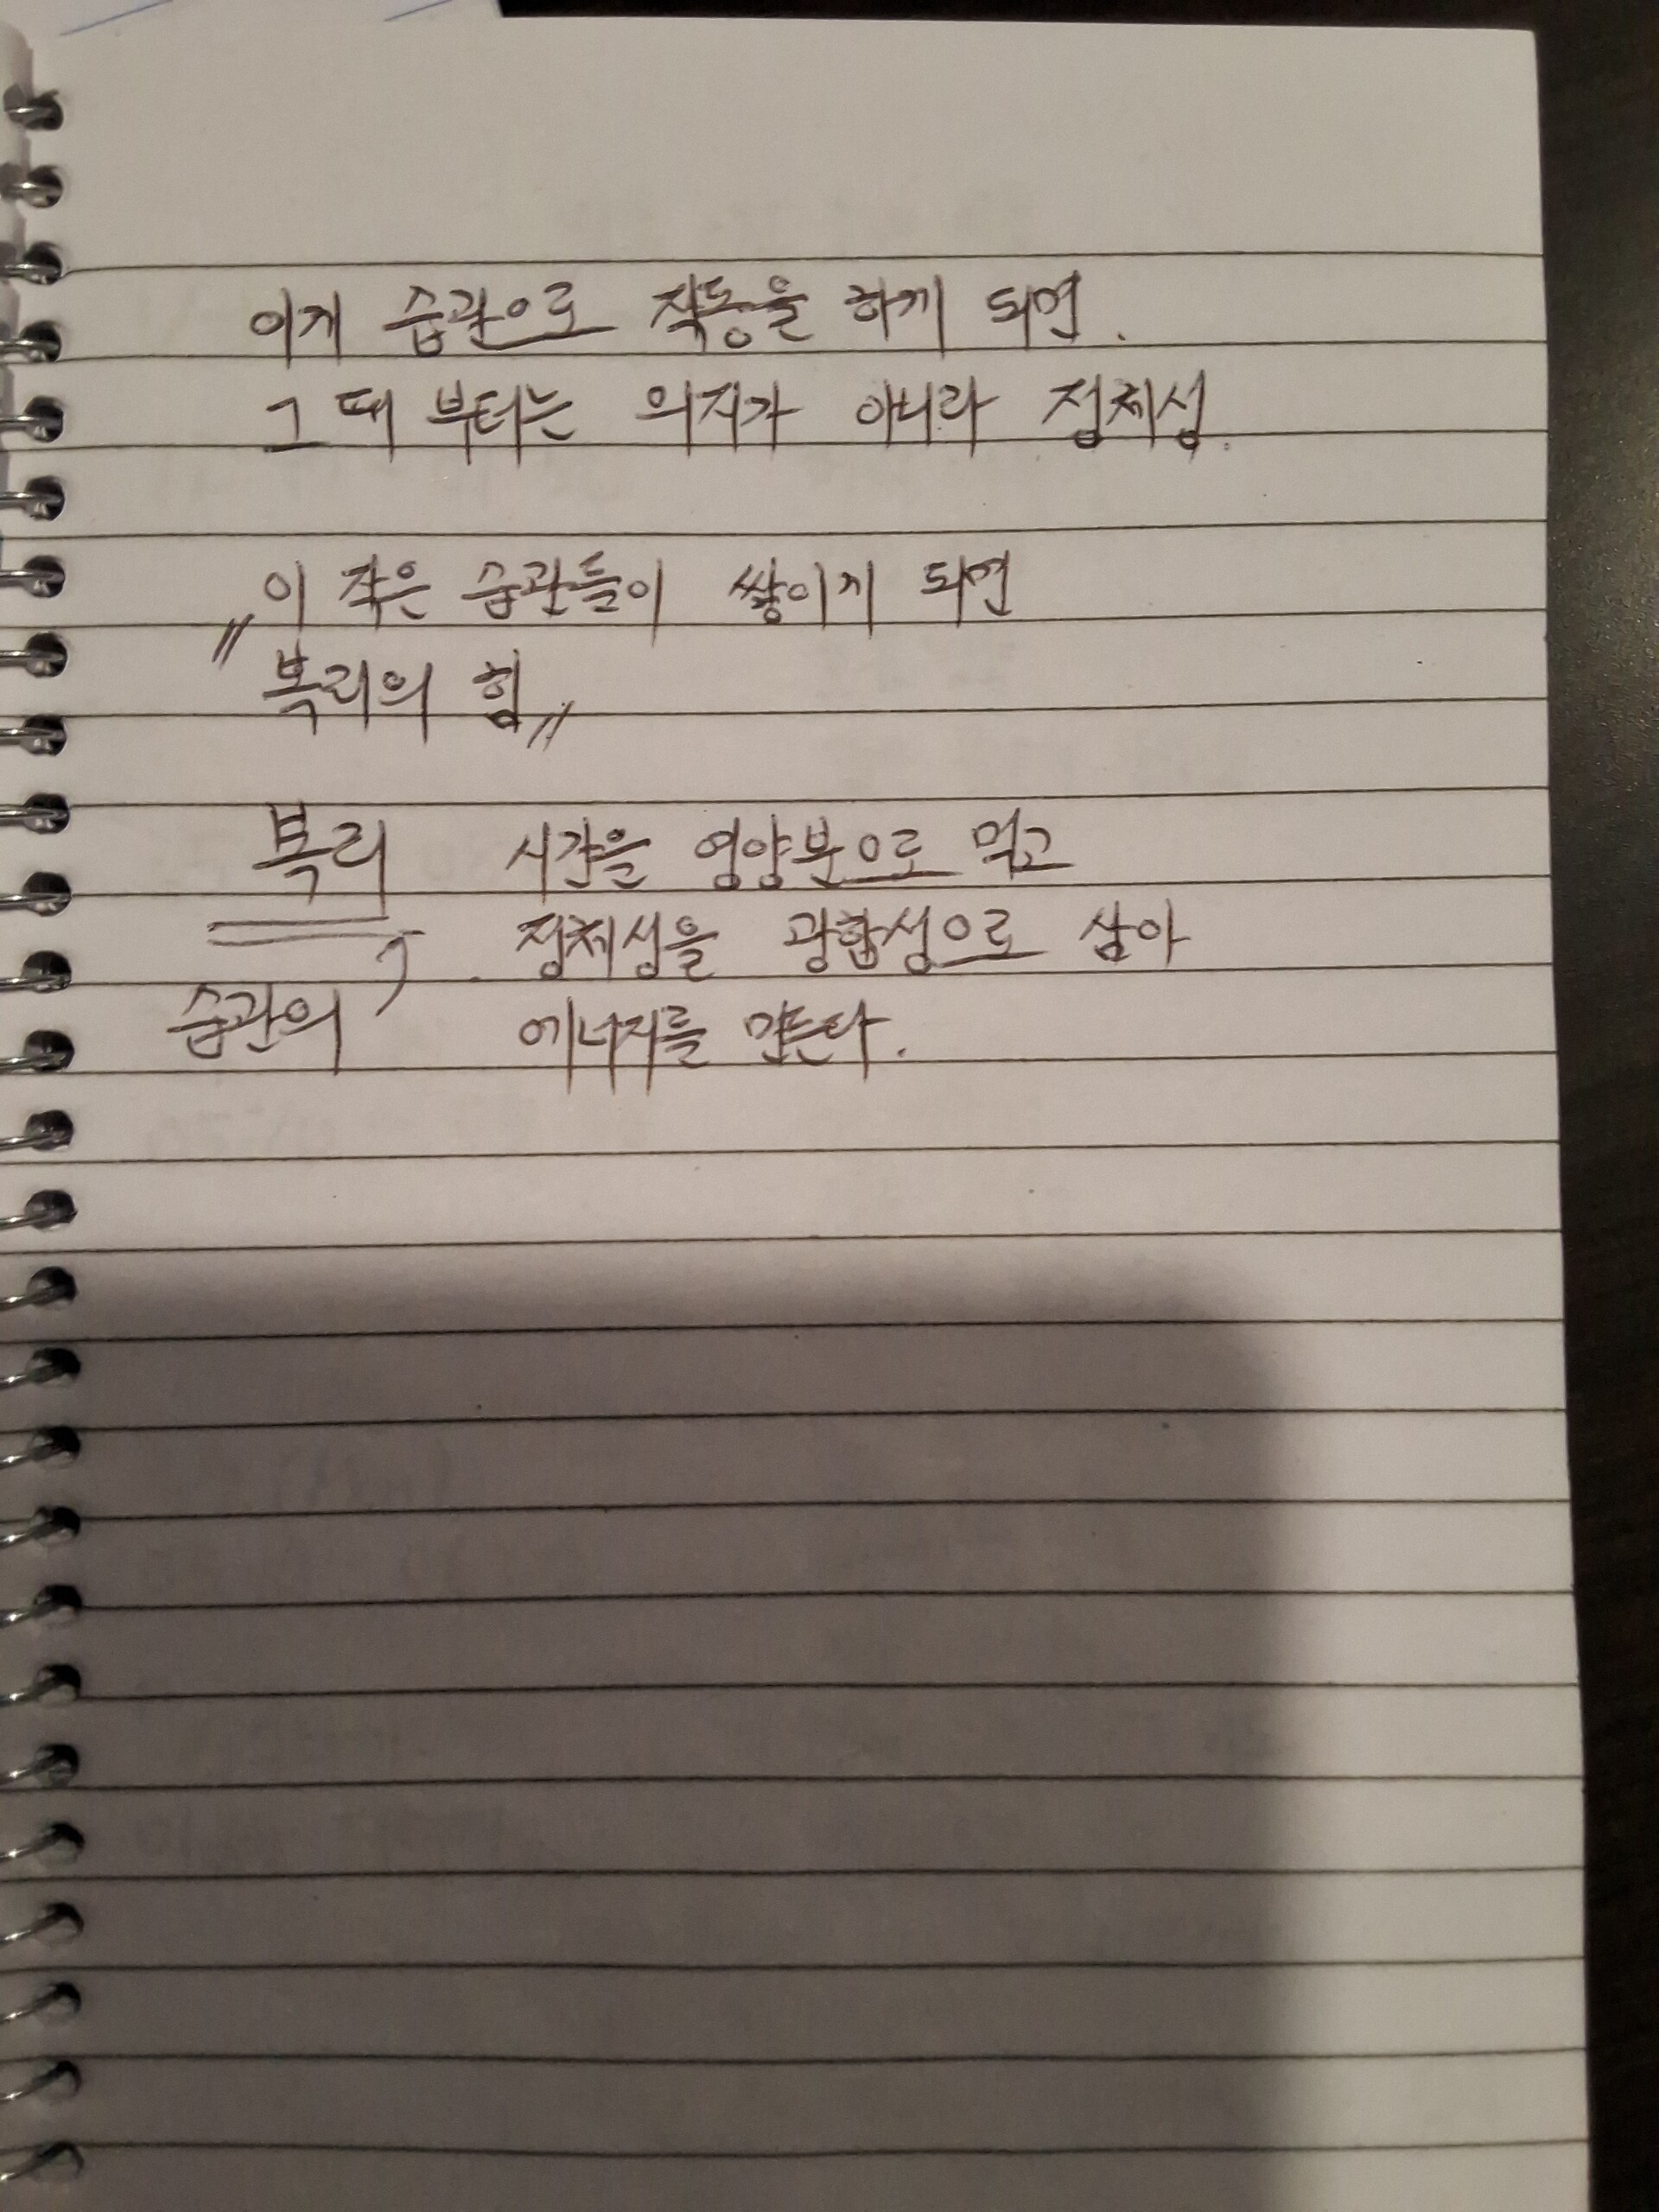 이게 습관으로 작동을 하게 되면.
그 때 부터는 의지가 아니라 정체성.
"이 작은 습관들이 쌓이게 되면
복리의 힘"
복리 시간을 영양분으로 먹고
정체성을 광합성으로 삼아
습관의 에너지를 만든다.